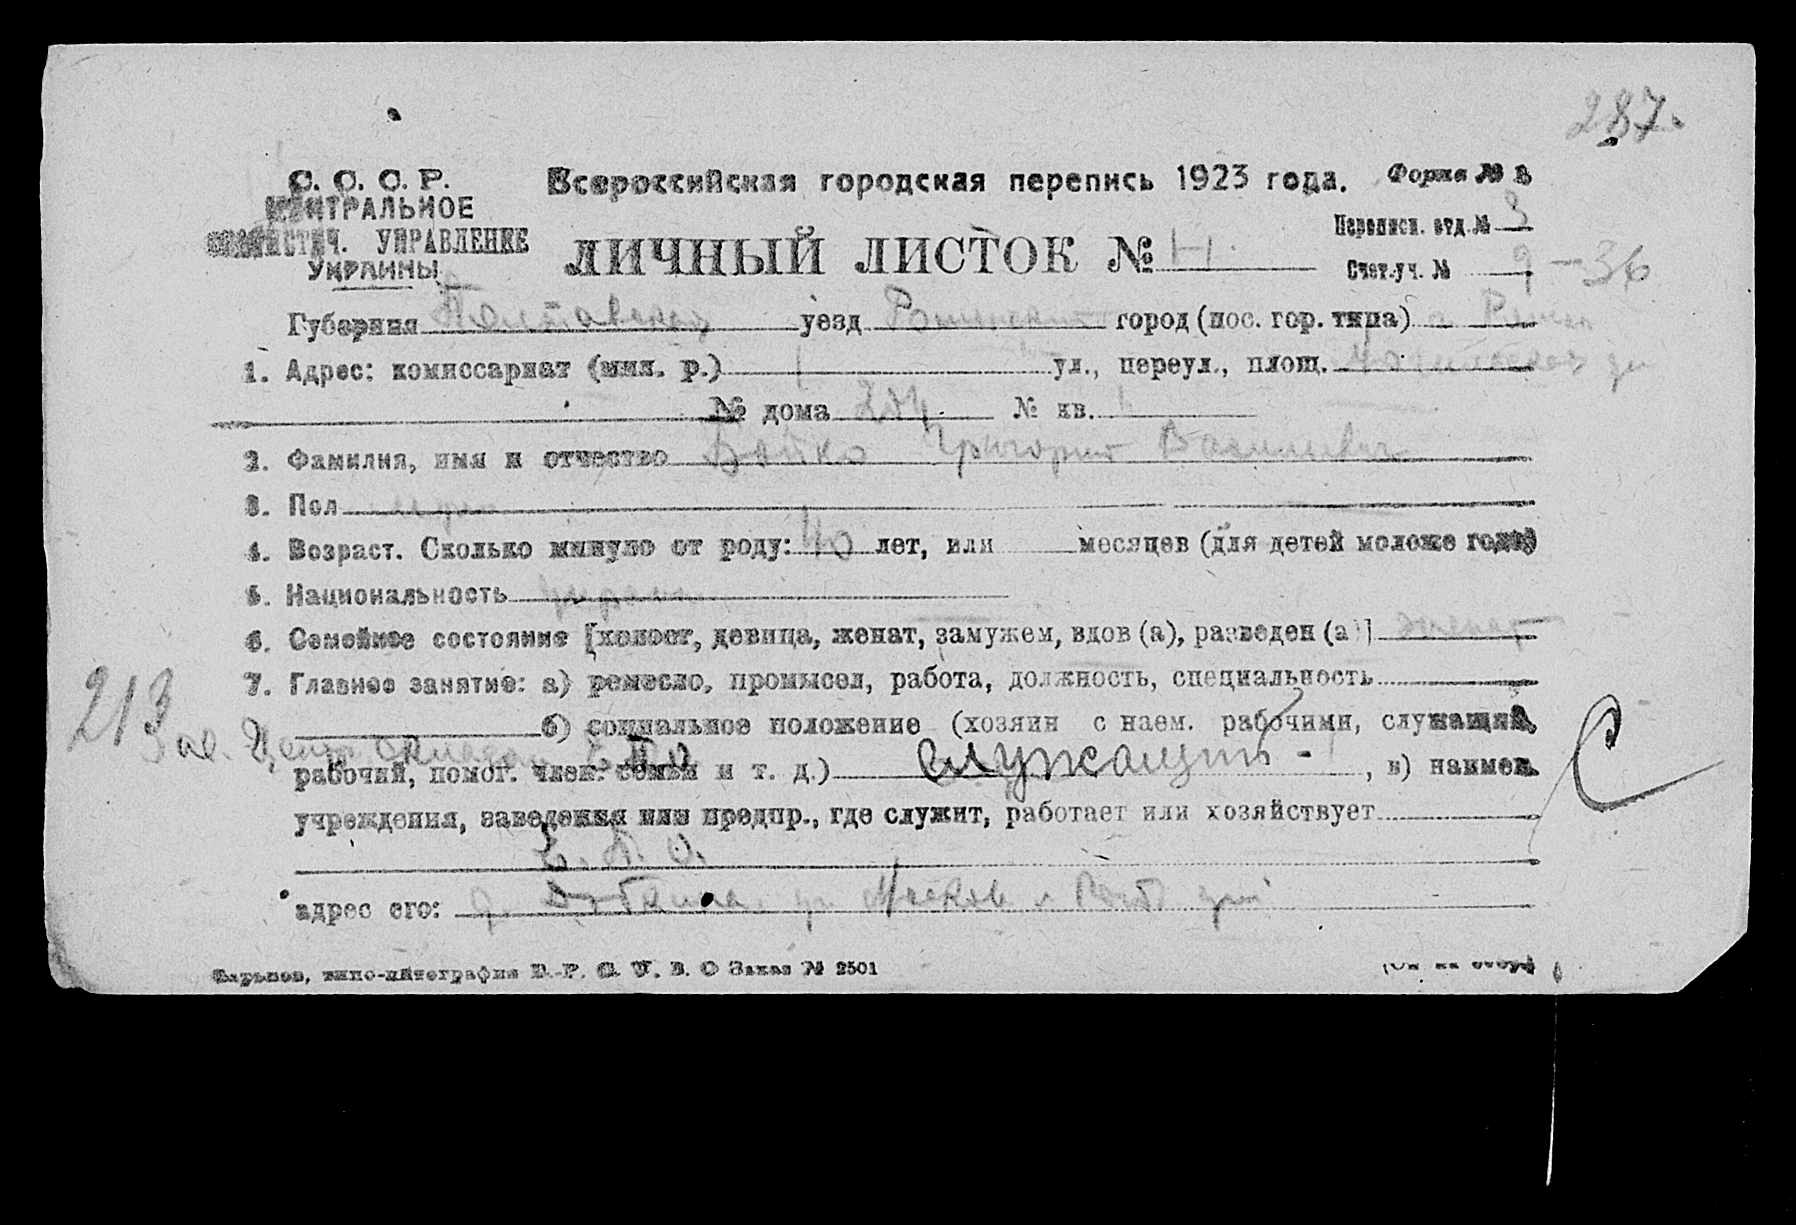 287.
С. С. С. Р.
ЦЕНТРАЛЬНОЕ
СТАТИСТИЧ. УПРАВЛЕНИЕ
УКРАИНЫ
Всероссийская городская перепись 1923 года. Форма № 3
Переписн. отд. № 3
ЛИЧНЫЙ ЛИСТОК №
Счет.-уч. № 9 - 36
Губерния Полтавская уезд Роменский город (пос. гор. типа) г. Ромен
1. Адрес: комиссариат (мил. р.) 1 ул., переул., площ.
№ дома № кв. 1
2. Фамилия, имя и отчество Бойко Григорий Васильевич
3. Пол муж
4. Возраст. Сколько минуло от роду: 40 лет, или месяцев (для детей моложе года)
5. Национальность украин
6. Семейное состояние [холост, девица, женат, замужем, вдов (а), разведен (а)] женат
7. Главное занятие: а) ремесло, промысел, работа, должность, специальность
213
б) социальное положение (хозяин с наем. рабочими, служащий,
Зав. Центр складом Е.П.О.
рабочий, помог. член. семьи и т. д.) служащий - 1, в) наимен.
С
учреждения, заведения или предпр., где служит, работает или хозяйствует
Е. П. О.
адрес его:
Харьков, типо-литография № 2501
(См. на обор.)